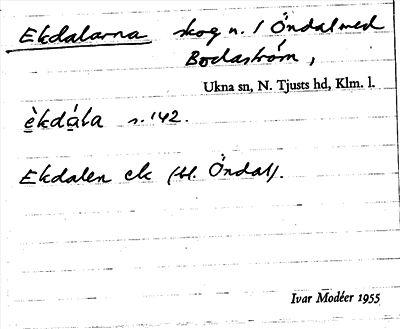 Ekdalarna skog n. / Öndal med
Bodaström,
Ukna sn, N. Tjusts hd, Klm. l.
èkdála s. 142.
Ekdalen ek (bl. Öndal).
Ivar Modéer 1955